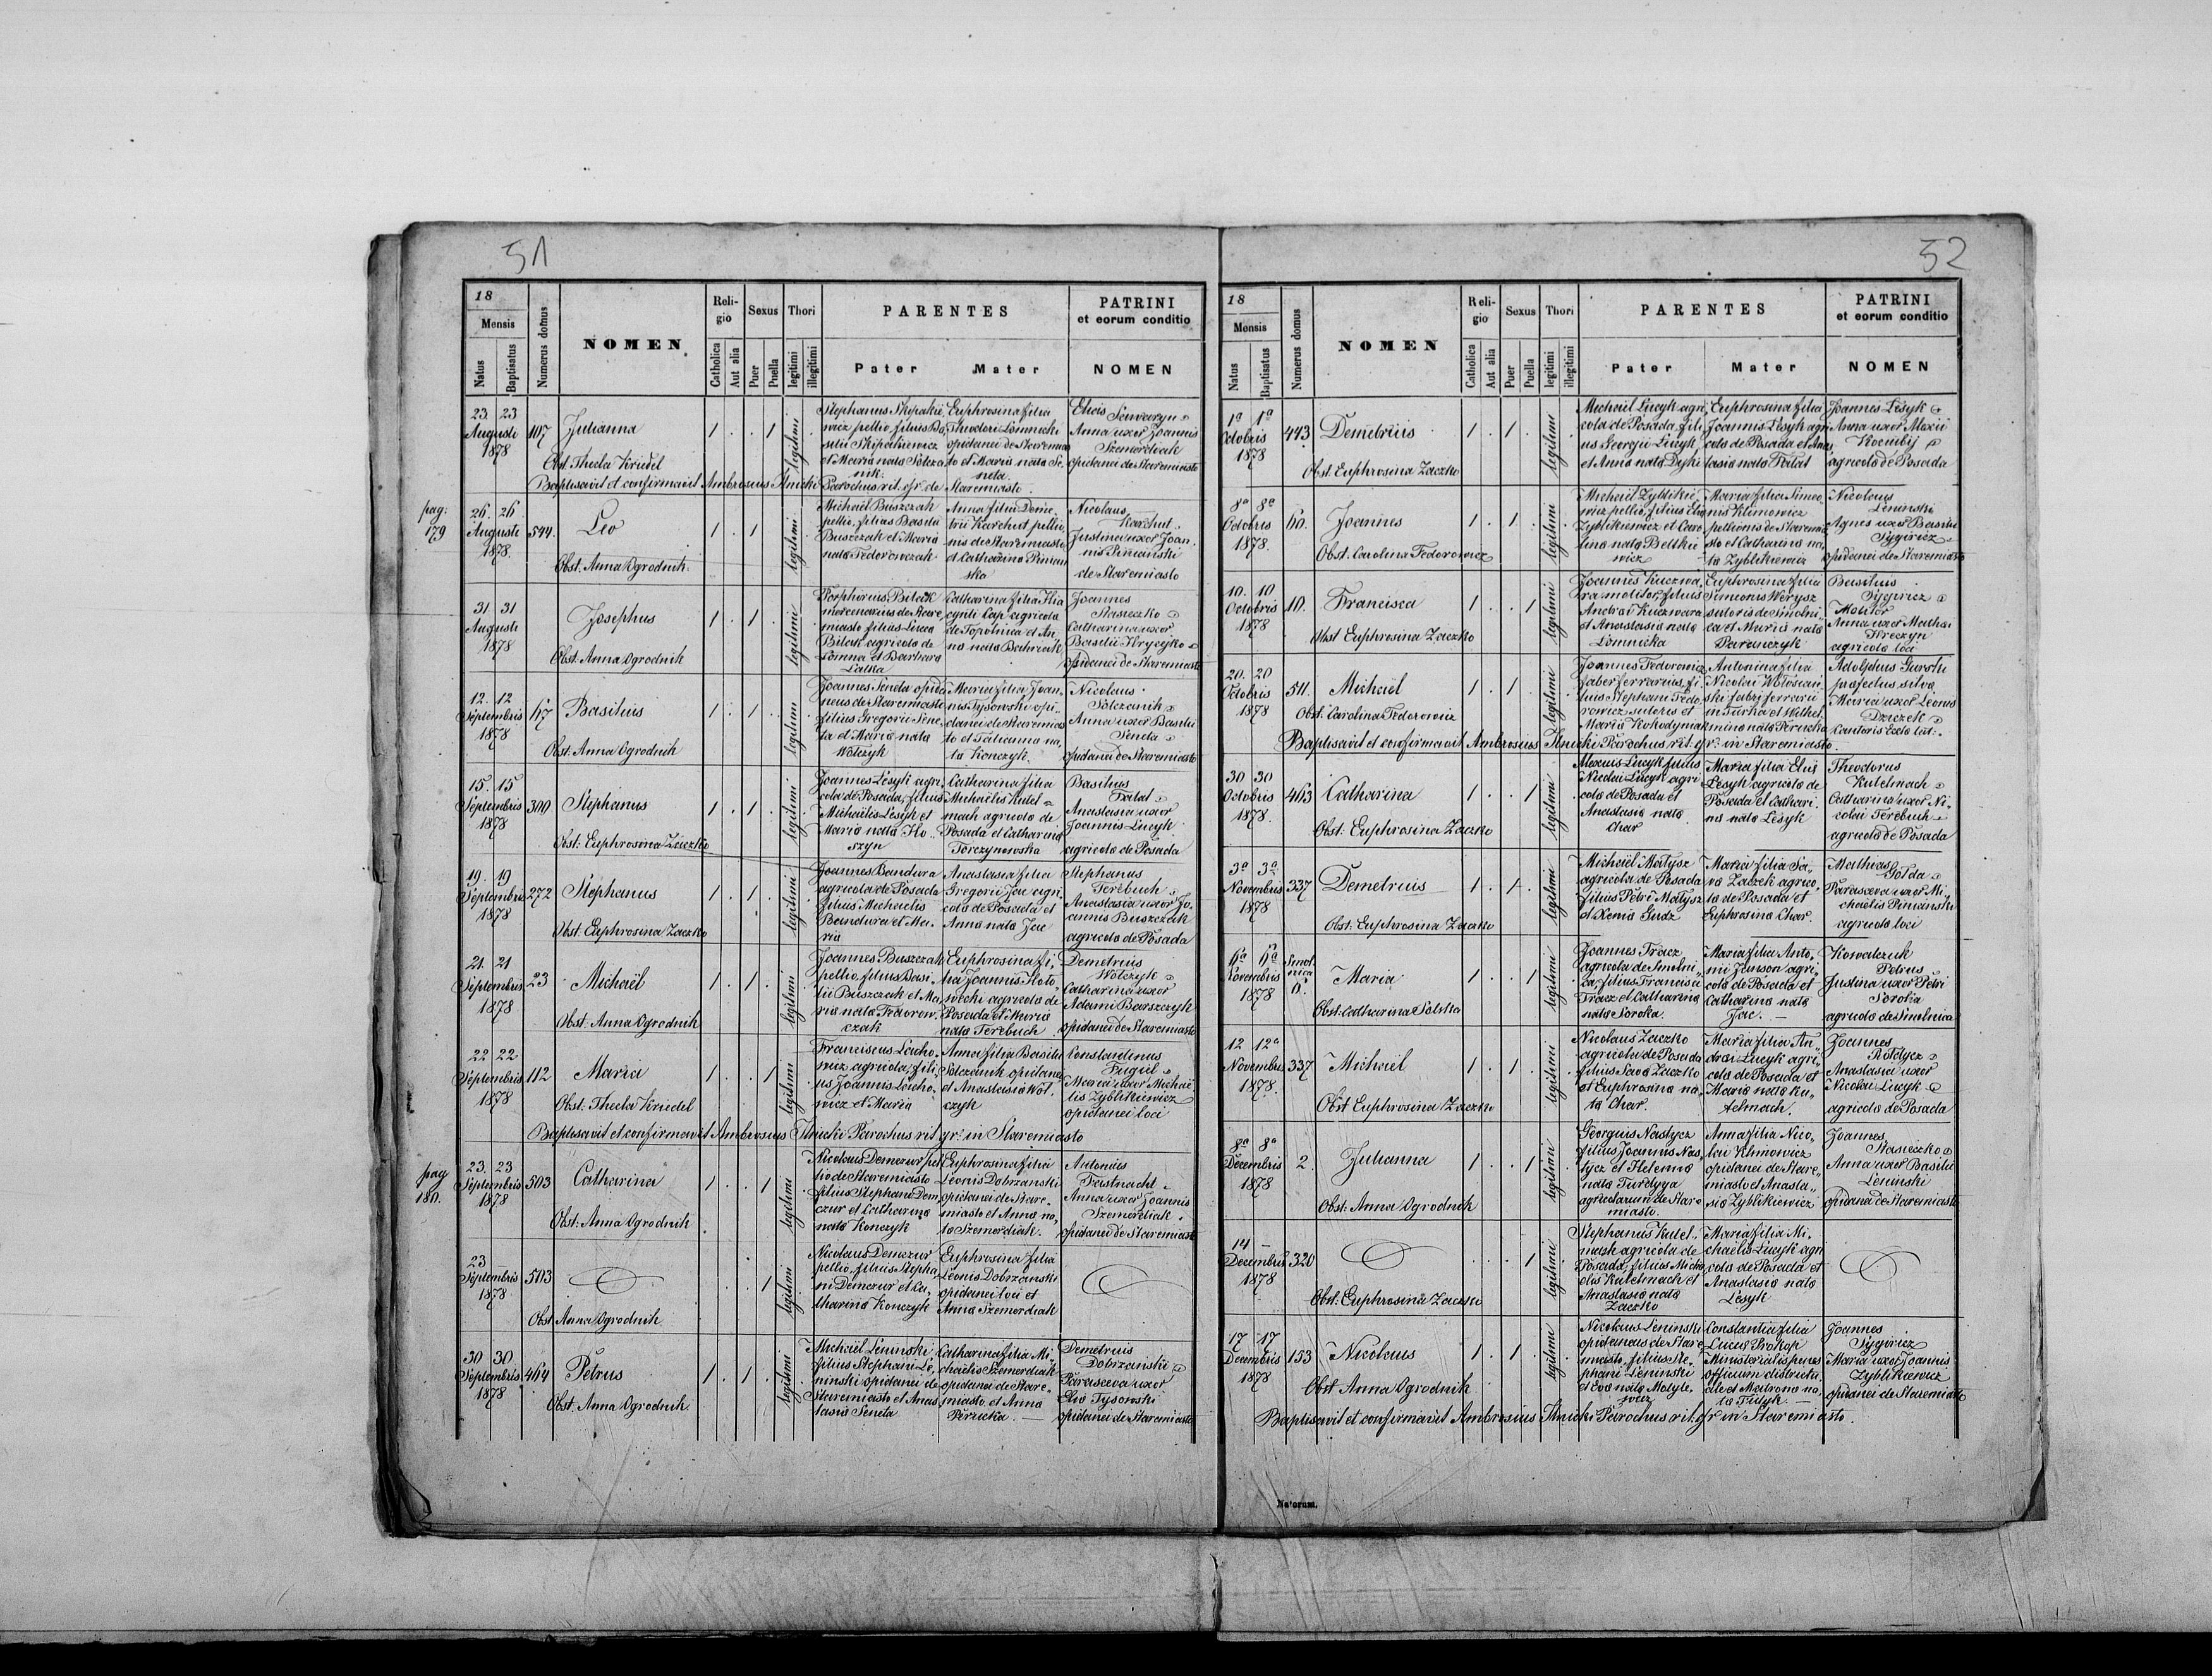 51
18
Mensis
Natus
Baptisatus
Numerus domus
NOMEN
Religio
Catholica
Aut alia
Sexus
Puer
Puella
Thori
legitimi
illegitimi
PARENTES
Pater
Mater
PATRINI
et eorum conditio
NOMEN
23. 23
Augusti
1878
107
Julianna
Obst Thecla Kriedel
legitimi
Stephanus Skipakie
wicz pellio filius Ba
silii Skipakiewicz
et Maria nata Solcza
nik.
Euphrosina filia
Theodori Lomnicki
opidanei de Staremias
to et Maria nata Se
neta.
Elias Sewaryn
Anna uxor Joannis
Szemerdiak
opidanei de Staremiasto
Baptisavit et confirmavit Ambrosius Ilnicki Parochus rit. gr. de Staremiasto.
pag:
179
26. 26
Augusti
1878.
544.
Leo
Obst. Anna Ogrodnik.
legitimi
Michael Buszczak
pellio, filius Basilii
Buszczak et Maria
nata Fedoronczak
Anna filia Deme
trii Karchut pellio
nis de Staremiasto
et Catharina Pinian
ska
Nicolaus
Karchut
Justina uxor Joan
nis Pinianski
de Staremiasto
31 31
Augusti
1878
Josephus
Obst. Anna Ogrodnik
legitimi
Porphirius Bilak
mercenarius de Stare
miasto filius Luca
Bilak agricola de
Lomna et Barbara
Lalka
Catharina filia Hia
cynti Cap agricola
de Topolnica et An
na nata Bahriak
Joannes
Stasieczko
Catharina uxor
Basilii Hrycyko
opidanei de Staremiasto
12. 12
Septembris
1878
167
Basilius
Obst. Anna Ogrodnik
legitimi
Joannes Seneta opida
neus de Staremiasto
filius Gregorii Sene
ta et Maria nata
Wolczyk
Maria filia Joan
nis Tysowski opi
danei de Staremias
to et Tatianna na
ta Konczyk.
Nicolaus
Solczanik
Anna uxor Basilii
Seneta
opidanei de Staremiasto
15. 15
Septembris
1878
300
Stephanus
Obst: Euphrosina Zaczko
legitimi
Joannes Lesyk agri
cola de Posada, filius
Michaelis Lesyk et
Maria nata Ho
szyn
Catharina filia
Michaelis Kutel
mach agricola de
Posada et Catharina
Torczynowska
Basilius
Fatat
Anastasia uxor
Joannis Lucyk
agricola de Posada
19. 19
Septembris
1878
272
Stephanus
Obst. Euphrosina Zaczko
legitimi
Joannes Bandura
agricola de Posada
filius Michaelis
Bandura et Ma
ria
Anastasia filia
Gregorii Jac agri
cola de Posada et
Anna nata Jac
Stephanus
Terebuch
Anastasia uxor Jo
annis Buszczak
agricola de Posada
21. 21
Septembris
1878
23
Michaël
Obst. Anna Ogrodnik
legitimi
Joannes Buszczak
pellio filius Basi
lii Buszczak et Ma
ria nata Fedorow
czak
Euphrosina fi
lia Joannis Hoto
wecki agricola de
Posada et Maria
nata Terebuch
Demetrius
Wolczyk
Catharina uxor
Adami Barszczyk
opidanei de Staremiasto
22 22
Septembris
1878
112
Maria
Obst: Thecla Kriedel
legitimi
Franciscus Lacho
wicz agricola fili
us Joannis Lacho
wicz et Maria
Anna filia Basilii
Solczanik opidanei
et Anastasia Wol
czyk
Constantinus
Fugiel
Maria uxor Michaë
lis Zyblikiewicz
opidanei loci
Baptisavit et confirmavit Ambrosius Ilnicki Parochus rit. gr. in Staremiasto
pag
180.
23. 23
Septembris
1878
503
Catharina
Obst: Anna Ogrodnik
legitimi
Nicolaus Demczur pel
lio de Staremiasto
filius Stephani Dem
czur et Catharina
nata Konczyk
Euphrosina filia
Leonis Dobrzanski
opidanei de Stare
miasto et Anna na
ta Szemerdiak.
Antonius
Fastnacht
Anna uxor Joannis
Szemerdiak
opidanei de Staremiasto
23 –
Septembris
1878
503
Obst. Anna Ogrodnik
legitimi
Nicolaus Demczur
pellio, filius Stepha
ni Demczur et Ca
tharina Konczyk
Euphrosina filia
Leonis Dobrzanski
opidanei loci et
Anna Szemerdiak
30 30
Septembris
1878
464
Petrus
Obst. Anna Ogrodnik
legitimi
Michaël Leninski
filius Stephani Le
ninski opidanei de
Staremiasto et Anas
tasia Seneta
Catharina filia Mi
chaelis Szemerdiak
opidanei de Stare
miasto, et Anna
Perucka.
Demetrius
Dobrzanski
Parasceva uxor
Elia Tysowski
opidanei de Staremiasto
52
18
Mensis
Natus
Baptisatus
Numerus domus
NOMEN
Religio
Catholica
Aut alia
Sexus
Puer
Puella
Thori
legitimi
illegitimi
PARENTES
Pater
Mater
PATRINI
et eorum conditio
NOMEN
1a 1a
Octobris
1878
443
Demetrius
Obst Euphrosina Zaczko
legitimi
Michaël Lucyk agri
cola de Posada fili
us Georgii Lucyk
et Anna nata Dyki
Euphrosina filia
Joannis Lesyk agri
cola de Posada et Anas
tasia nata Fatat
Joannes Lesyk
Anna uxor Alexii
Kocubij
agricola de Posada
8a 8a
Octobris
1878.
60.
Joannes
Obst. Carolina Fedorowicz
legitimi
Michaël Zyblikie
wicz pellio, filius Elia
Zyblikiewicz et Caro
lina nata Beltkie
wicz
Maria filia Simeo
nis Klimowicz
pellionis de Staremia
sto et Catharina na
ta Zyblikiewicz
Nicolaus
Leninski
Agnes uxor Basilii
Sygiricz
opidanei de Staremiasto
10. 10
Octobris
1878
10.
Francisca
Obst Euphrosina Zaczko
legitimi
Joannes Kuczwa
ra molitor, filius
Andrai Kuczwara
et Anastasia nata
Lomnicka
Euphrosina filia
Simeonis Werysz
sutoris de Smolni
ca et Maria nata
Paranczyk
Basilius
Sygiricz
Molitor
Anna uxor Mathai
Hreczyn
agricola loci
20. 20
Octobris
1878
511.
Michaël
Obst. Carolina Fedorowicz
legitimi
Joannes Fedorowicz
faber ferrarius, fi
lius Stephani Fedo
rowicz sutoris et
Maria Kohodyniak
Antonina filia
Nicolai Wolosian
ski fabri ferrarii
in Turka et Wilhel
mina nata Perucka
Adolphus Gurski
prafectus silva
Maria uxor Leonis
Dziczek
Cantoris Eccla lat:
Baptisavit et confirmavit Ambrosius Ilnicki Parochus rit: gr: in Staremiasto.
30 30
Octobris
1878.
463
Catharina
Obst: Euphrosina Zaczko
legitimi
Alexius Lucyk filius
Nicolai Lucyk agri
cola de Posada et
Anastasia nata
Char
Maria filia Elia
Lesyk agricola de
Posada et Cathari
na nata Lesyk
Theodorus
Kutelmach
Catharina uxor Ni
colai Terebuch
agricola de Posada
3a 3a
Novembris
1878
337
Demetrius
Obst: Euphrosina Zaczko
legitimi
Michaël Matysz
agricola de Posada
filius Petri Matysz
et Xenia Gudz
Maria filia Sa
va Zaczek agrico
la de Posada et
Euphrosina Char.
Mathias
Golda
Parasceva uxor Mi
chaëlis Pinianski
agricola loci
6a 6a
Novembris
1878
Smol
nica
6.
Maria
Obst. Catharina Solska
legitimi
Joannes Tracz
agricola de Smolni
ca, filius Francisci
Tracz et Catharina
nata Soroka.
Maria filia Anto
nii Junson agri
cola de Posada et
Catharina nata
Jac. —
Kowalczuk
Petrus
Justina uxor Petri
Soroka
agricola de Smolnica
12 12a
Novembris
1878.
337
Michaël
Obst Euphrosina Zaczko
legitimi
Nicolaus Zaczko
agricola de Posada
filius Sava Zaczko
et Euphrosina na
ta Char.
Maria filia An
drai Lucyk agri
cola de Posada et
Maria nata Ku
telmach.
Joannes
Roldycz
Anastasia uxor
Nicolai Lucyk
agricola de Posada
8a 8a
Decembris
1878
2.
Julianna
Obst: Anna Ogrodnik
legitimi
Georgius Nastycz
filius Joannis Nas
tycz et Helena
nata Turdyga
agricolarum de Stare
miasto.
Anna filia Nico
lai Klimowicz
opidanei de Stare
miasto et Anasta
sia Zyblikiewicz
Joannes
Stasieczko
Anna uxor Basilii
Leninski
opidanei de Staremiasto
14 –
Decembris
1878
320
Obst. Euphrosina Zaczko
legitimi
Stephanus Kutel
mach agricola de
Posada, filius Micha
elis Kutelmach et
Anastasia nata
Zaczko
Maria filia Mi
chaëlis Lucyk agri
cola de Posada et
Anastasia nata
Lesyk
17 17
Decembris
1878
133
Nicolaus
Obst Anna Ogrodnik
legitimi
Nicolaus Leninski
opidaneus de Stare
miasto, filius Ste
phani Leninski
et Eva nata Matyle
wicz
Constantia filia
Luca Prokop
Ministerialis penes
officium districtu
ale et Matrona na
ta Filyk. —
Joannes
Sygiricz
Maria uxor Joannis
Zyblikiewicz
opidanei de Staremiasto
Baptisavit et confirmavit Ambrosius Ilnicki Parochus rit. gr in Staremiasto.
Natorum.